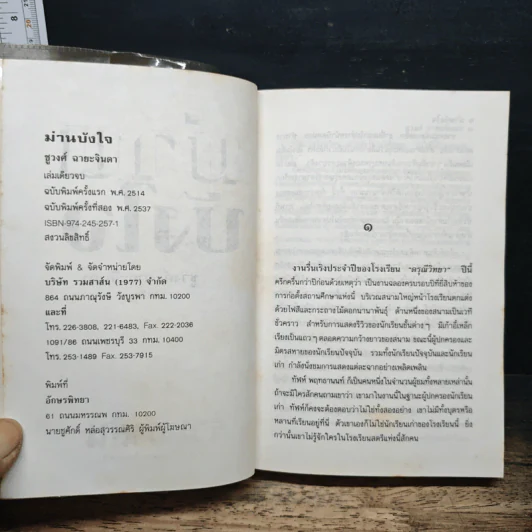 ม่านบังใจ
ชูวงศ์ ฉายะจินดา
เล่มเดียวจบ
ฉบับพิมพ์ครั้งแรก พ.ศ. 2514
ฉบับพิมพ์ครั้งที่สอง พ.ศ. 2537
ISBN-974-245-257-1
สงวนลิขสิทธิ์
จัดพิมพ์ & จัดจำหน่ายโดย
บริษัท รวมสาส์น (1977) จำกัด
864 ถนนภาณุรังษี วังบูรพา กทม. 10200
และที่
โทร. 226-3808, 221-6483, Fax 222-2036
1091/86 ถนนเพชรบุรี 33 กทม. 10400
โทร. 253-1489 Fax. 253-7915
พิมพ์ที่
อักษรพิทยา
61 ถนนมหรรณพ กทม. 10200
นายชูศักดิ์ หล่อสุวรรณศิริ ผู้พิมพ์ผู้โฆษณา
๑
งานรื่นเริงประจำปีของโรงเรียน "ดรุณีวิทยา" ปีนี้
ครึกครื้นกว่าปีก่อนด้วยเหตุว่า เป็นงานฉลองครบรอบปีที่ยี่สิบห้าของ
การก่อตั้งสถานศึกษาแห่งนี้ บริเวณสนามใหญ่หน้าโรงเรียนตกแต่ง
ด้วยไฟสีและกระถางไม้ดอกนานาพันธุ์ ด้านหนึ่งของสนามเป็นเวที
ชั่วคราว สำหรับการแสดงรีวิวของนักเรียนชั้นต่างๆ มีเก้าอี้เหล็ก
เรียงเป็นแถวๆ ตลอดความกว้างยาวของสนาม ขณะนี้ผู้ปกครองและ
มิตรสหายของนักเรียนปัจจุบัน รวมทั้งนักเรียนปัจจุบันและนักเรียน
เก่า กำลังนั่งชมการแสดงแต่ละฉากอย่างเพลิดเพลิน
ทัฬห์ พฤทธานนท์ ก็เป็นคนหนึ่งในจำนวนผู้ชมทั้งหลายเหล่านั้น
ถ้าจะมีใครสักคนถามเขาว่า เขามาในงานนี้ในฐานะผู้ปกครองของนักเรียน
เก่า ทัฬห์ก็คงจะต้องตอบว่าไม่ใช่ทั้งสองอย่าง เขาไม่มีทั้งบุตรหรือ
หลานที่เรียนอยู่ที่นี่ ตัวเขาเองก็ไม่ใช่นักเรียนเก่าของโรงเรียนนี้ ยิ่ง
กว่านั้นเขาไม่รู้จักใครในโรงเรียนสตรีแห่งนี้สักคน